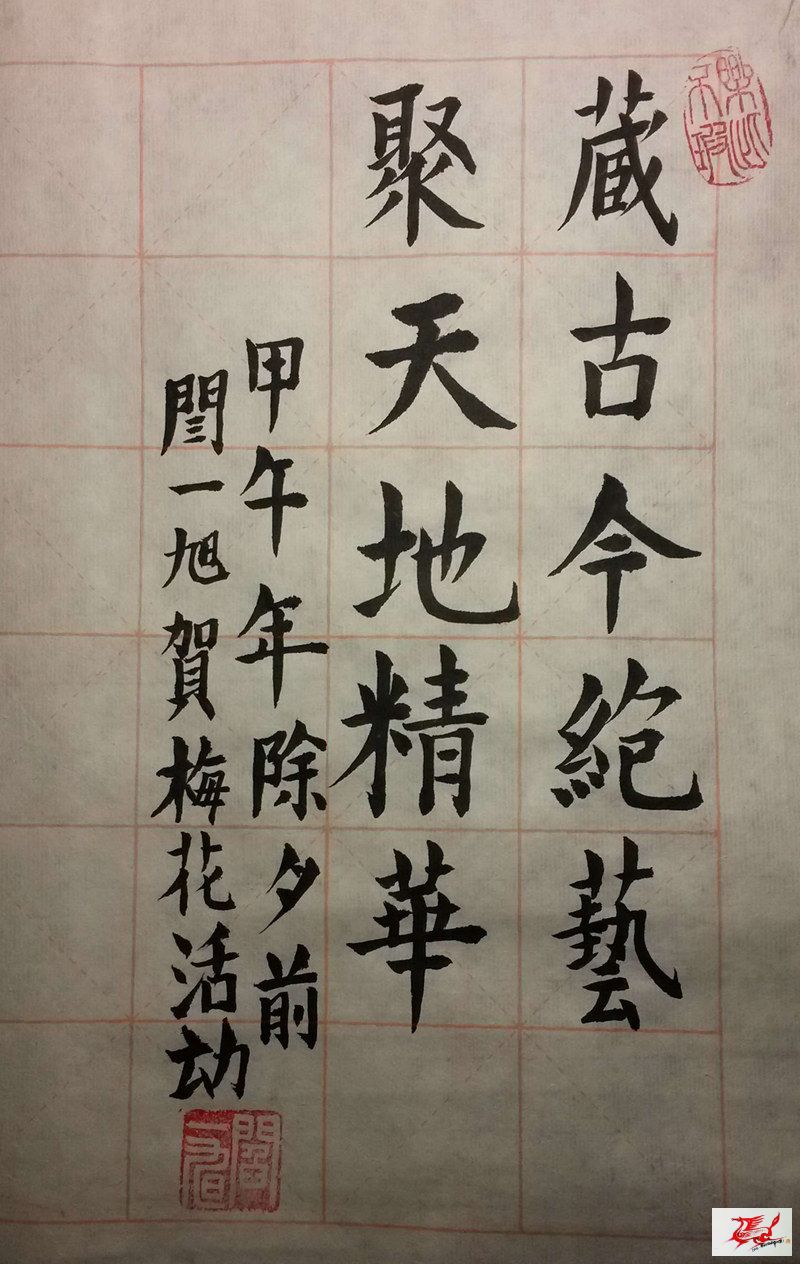 藏古今絶藝
聚天地精華
甲午年除夕前
閆一旭賀梅花活动